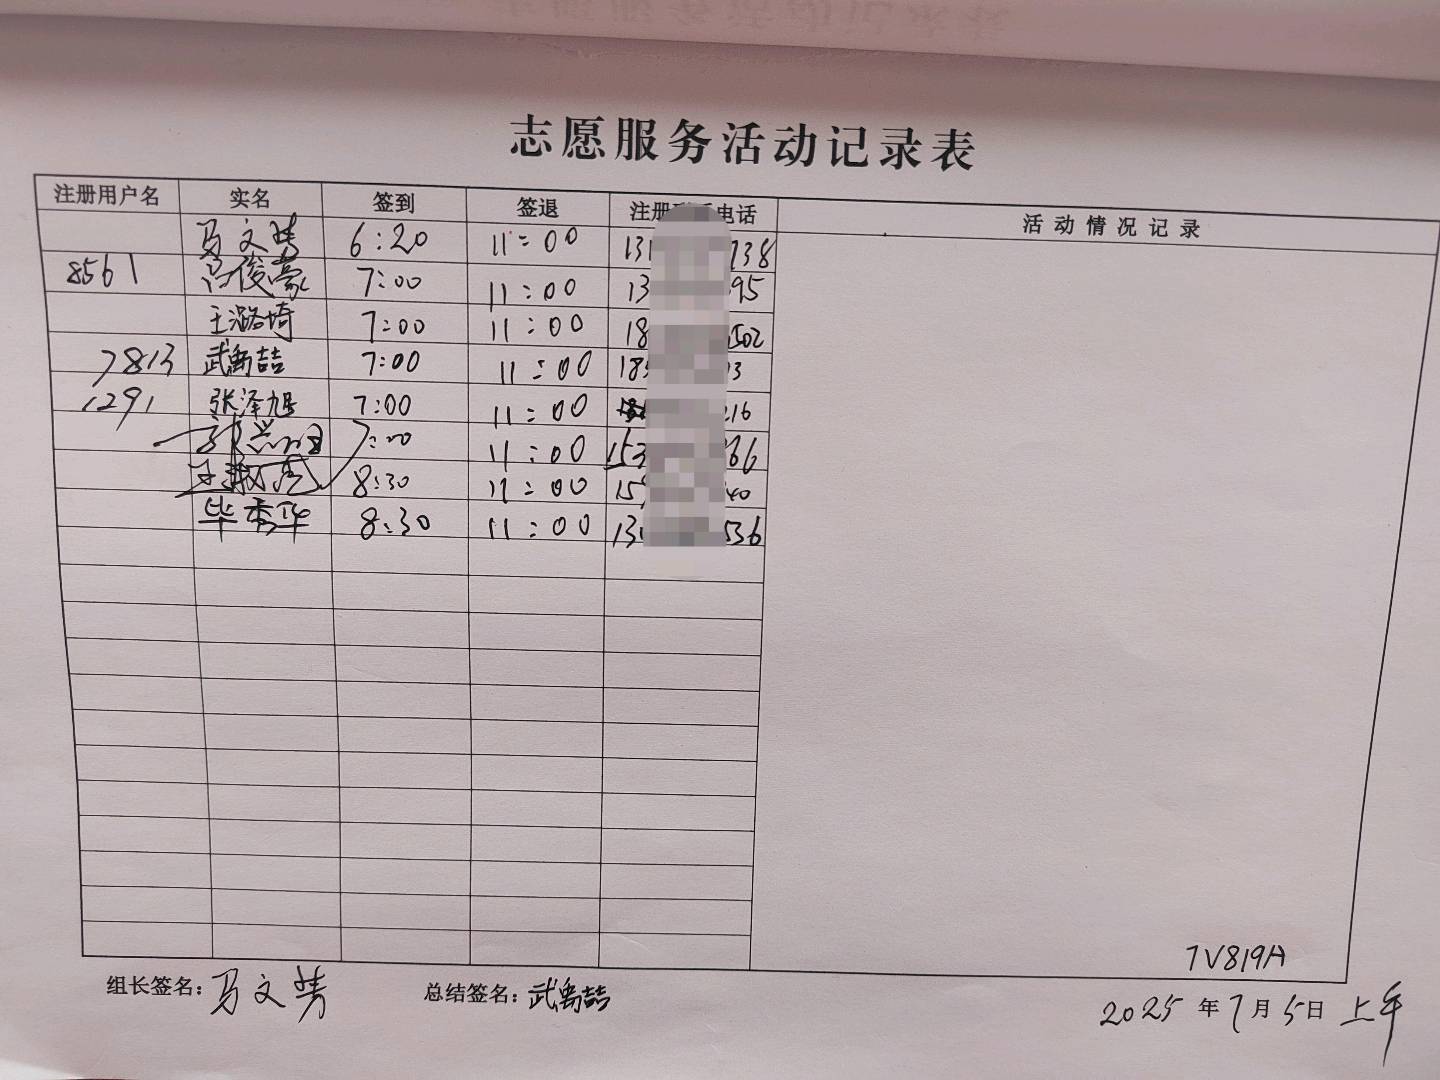 志愿服务活动记录表
注册用户名 实名 签到 签退 注册 电话 活动情况记录
马文 6:20 11:00 13 738
8561 冯俊豪 7:00 11:00 13 95
王潞埼 7:00 11:00 18 502
7813 武禹喆 7:00 11:00 185 13
1291 张泽旭 7:00 11:00 216
7:00 11:00 153 66
8:30 11:00 15 40
毕秀华 8:30 11:00 13 536
TV819A
组长签名: 马文 总结签名: 武禹喆
2025 年 7 月 5 日 上午